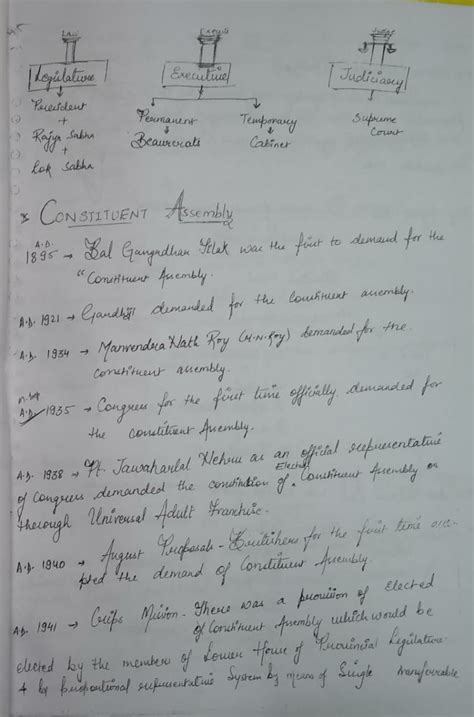 Law
Legislature
President
+
Rajya Sabha
+
Lok Sabha
Executive
Permanent
Beaurcrats
Temporary
Cabinet
Judiciary
Supreme
Court
CONSTITUENT Assembly
A.D.
1895 → Bal Gangadhar Tilak was the first to demand for the
"Constituent Assembly.
A.D. 1921 → Gandhiji demanded for the Constituent assembly.
A.D. 1934 → Manvendra Nath Roy (M.N. Roy) demanded for the
constituent assembly.
A.D. 1935 → Congress for the first time officially demanded for
the constituent Assembly.
A.D. 1938 → Pt. Jawaharlal Nehru as an official representative
of Congress demanded the constitution of Elected Constituent Assembly on
thorough Universal Adult Franchise.
A.D. 1940 → August Proposals - Britishers for the first time acc-
pted the demand of Constituent Assembly.
A.D. 1941 → Crips Mission - There was a provision of Elected
of Constituent Assembly which would be
elected by the members of Lower House of Provincial Legislature
& by proportional representative System by means of Single transferrable